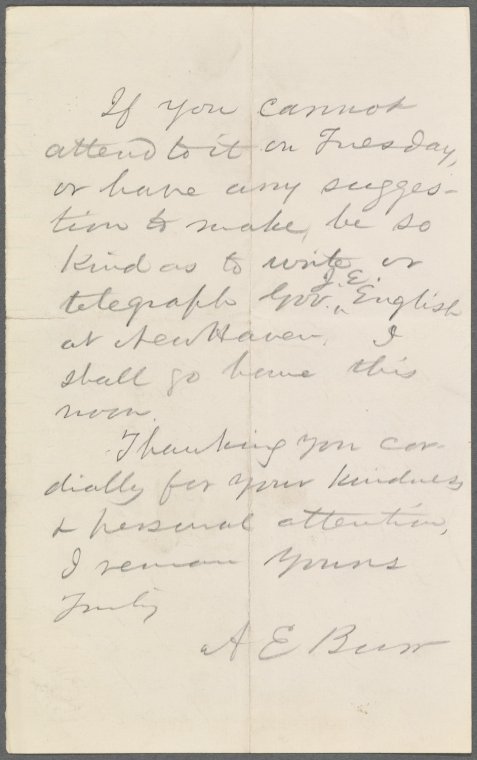 If you cannot
attend to it on Tuesday,
or have any sugges-
tion to make, be so
kind as to write or
J. E.
telegraph Gov. ^ English
at New Haven. I
shall go home this
noon.
Thanking you cor-
dially for your kindness
& personal attention,
I remain Yours
Truly
A E Burr